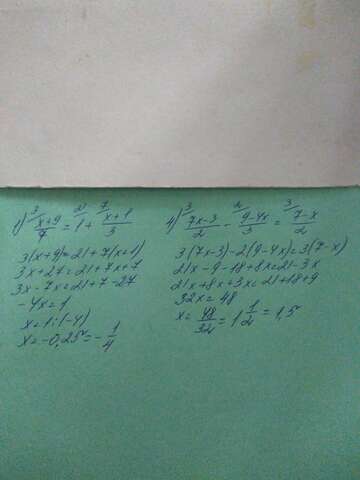 1) ³/ (x+9)/7 = ²¹/ 1 + ⁷/ (x+1)/3
3(x+9)=21+7(x+1)
3x+27=21+7x+7
3x-7x=21+7-27
-4x=1
x=1:(-4)
x=-0,25=-1/4
4) ³/ (7x-3)/2 - ²/ (9-4x)/3 = ³/ (7-x)/2
3(7x-3)-2(9-4x)=3(7-x)
21x-9-18+8x=21-3x
21x+8x+3x=21+18+9
32x=48
x=48/32=1 1/2=1,5